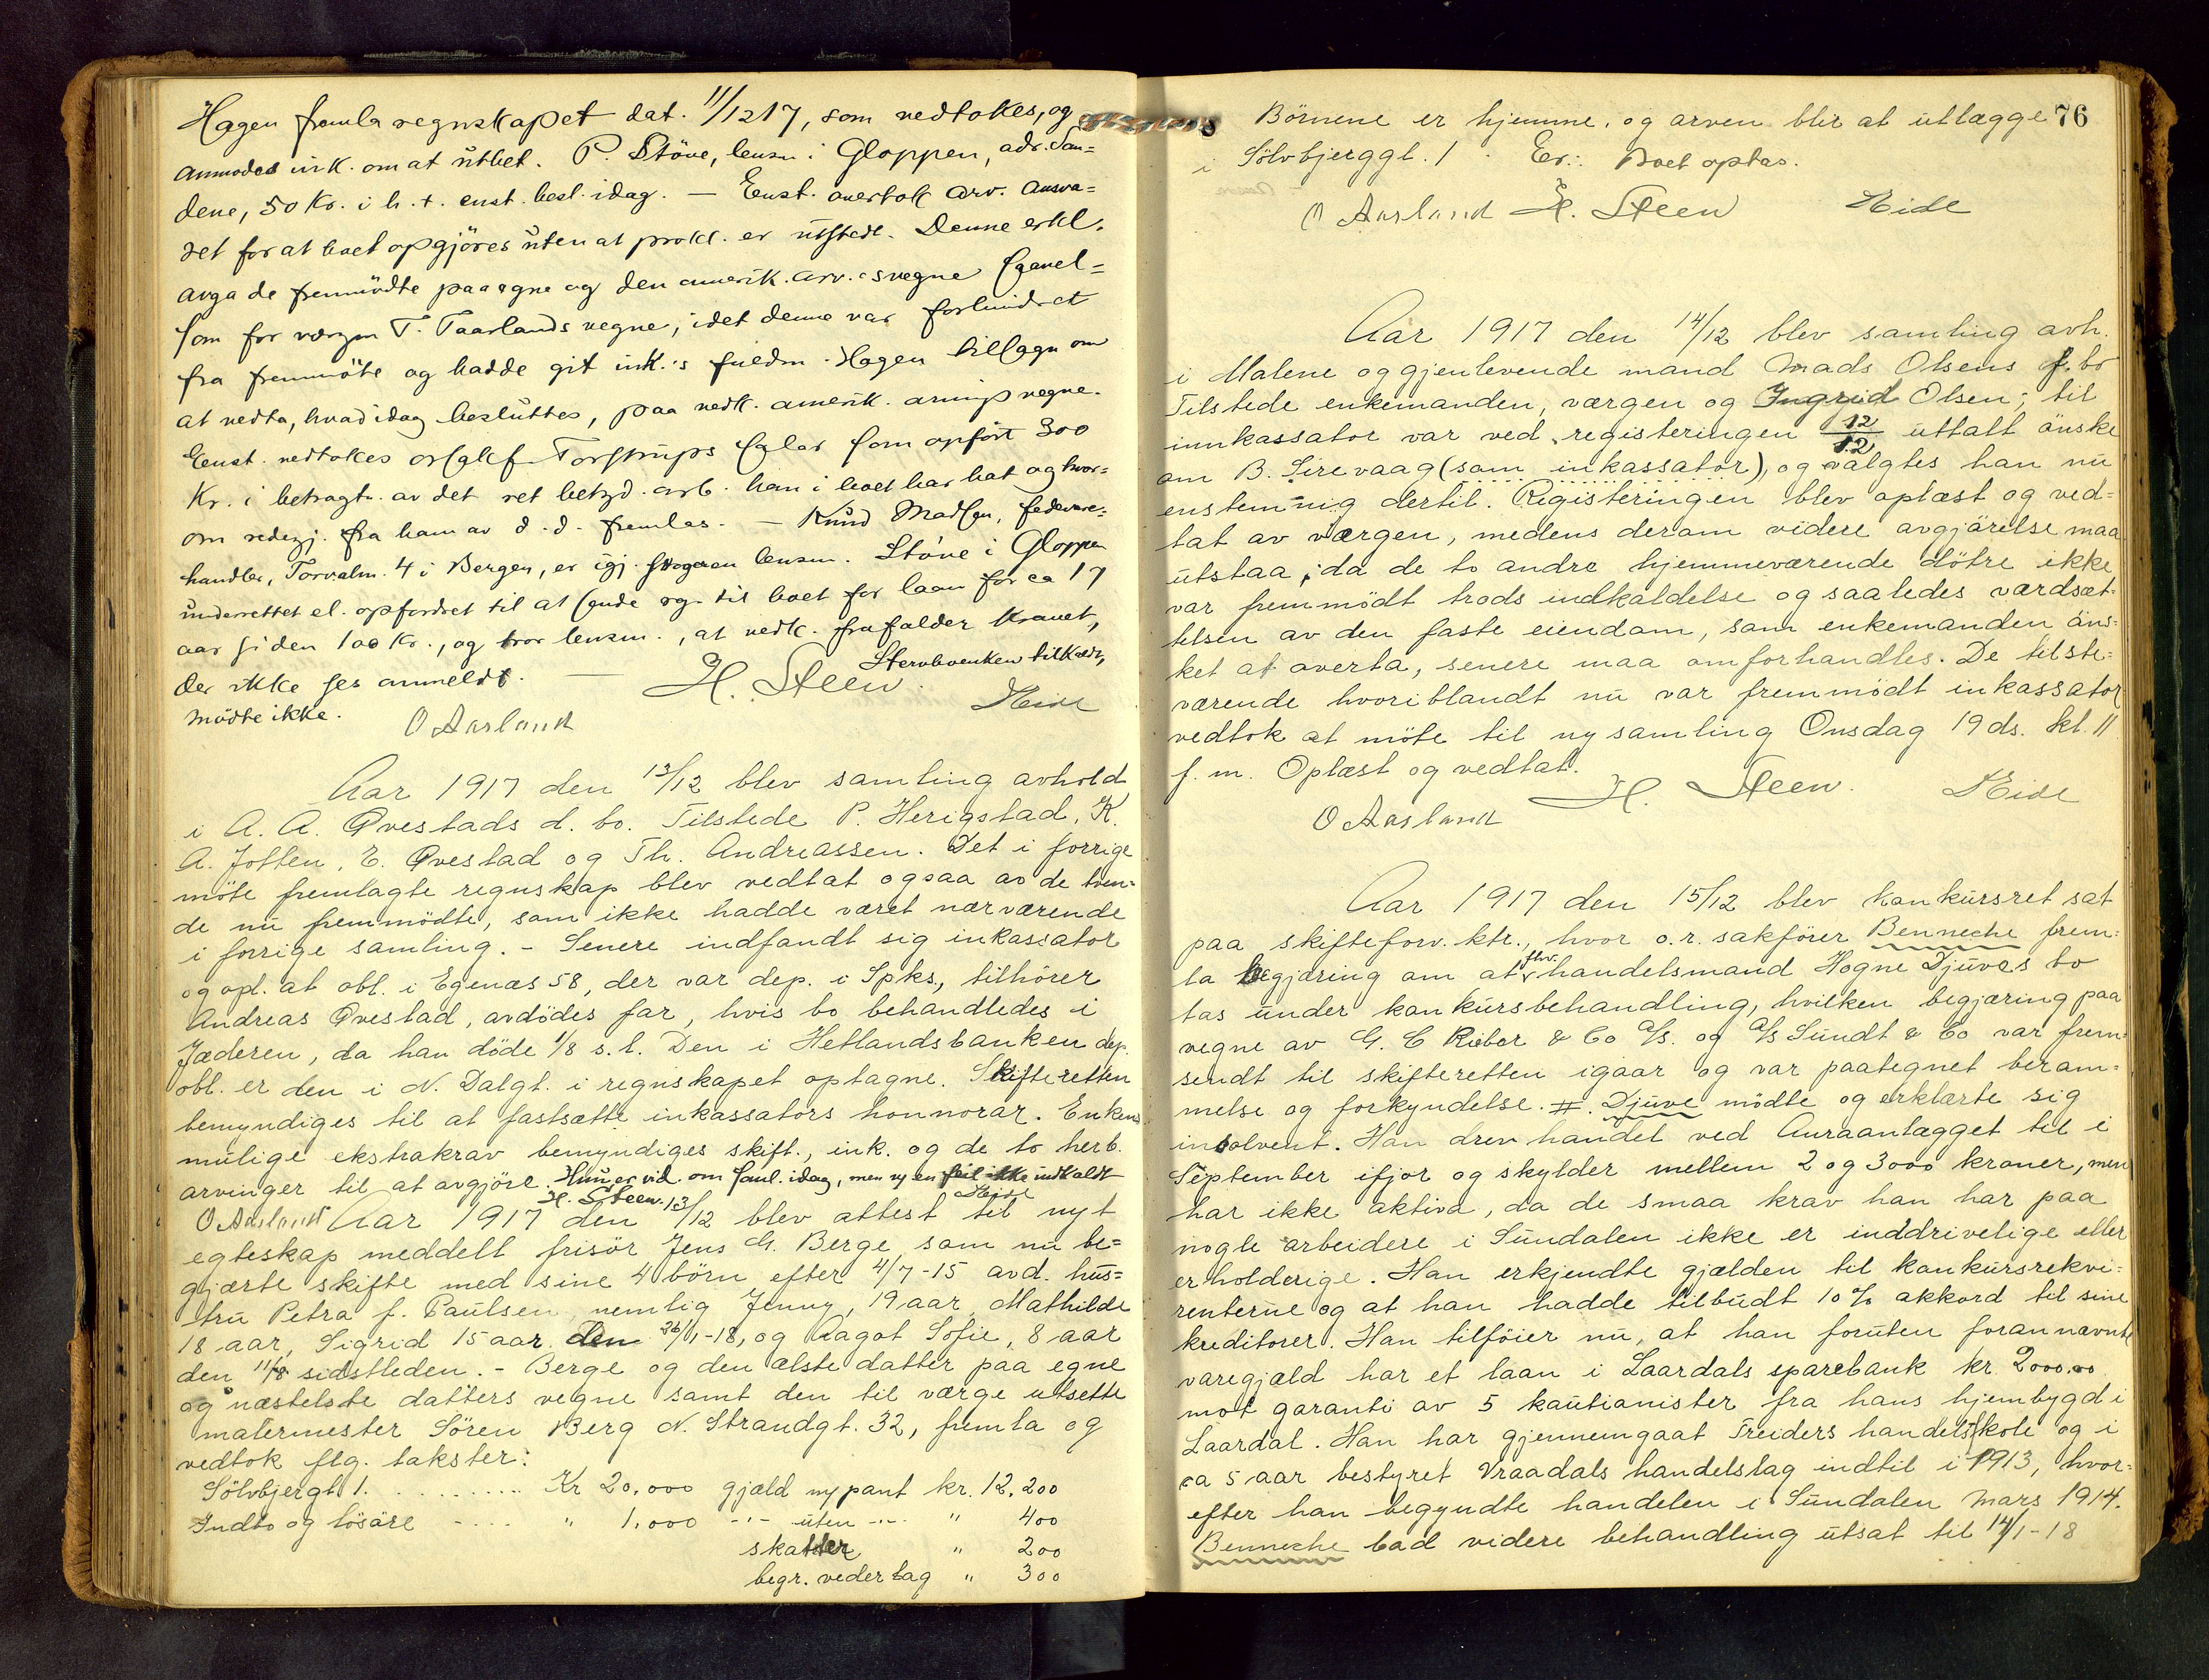 Hagen fremla regnskapet dat. 11/12 17, som vedtokes, og
anmodes ink. om at utbet. P. Stöve, lensm. i Gloppen, adr. San=
dene, 50 Kr. i h. t. enst. besl. idag. — Enst. overtok arv. ansva=
ret for at boet opgjöres uten at prokl. er utstedt. Denne erkl.
avga de fremmödte paa egne og den amerik. arv.s vegne saavel=
som for vergen T. Taarlands vegne, idet denne var forhindret
fra fremmöte og hadde git ink.'s fuldm. Hagen tilsagn om
at vedta, hvad idag besluttes, paa vedk. amerik. arvings vegne.
Enst. vedtokes Torstrups salær som opfört 300
Kr. i betragtn. av det ret betyd. arb. han i boet har hat og hvor=
om redegj. fra ham av d. d. fremlaes. — Knud Madsen, fedevare=
handler, Torvalm. 4 i Bergen, er igj. lensm. Stöve i Gloppen
underrettet el. opfordret til at sende rgn. til boet for laan for ca 17
aar siden 100 Kr., og tror lensm., at vedk. frafalder kravet,
der ikke ses anmeldt. — Stervboenken tilkaldt,
mödte ikke. O Aarland H. Steen. Eide
Aar 1917 den 13/12 blev samling avhold
i A. A. Qvestads d. bo. Tilstede P. Herigstad, K.
A. Jotten, E. Qvestad og Th. Andreassen. Det i forrige
möte fremlagte regnskap blev vedtat ogsaa av de tven=
de nu fremmödte, som ikke hadde været nærværende
i forrige samling. - Senere indfandt sig inkassator
og opl. at obl. i Egenæs 58, der var dep. i Spks., tilhörer
Andreas Qvestad, avdödes far, hvis bo behandledes i
Jæderen, da han döde 1/8 s. l. Den i Hetlandsbanken dep.
obl. er den i N. Dalgt. i regnskapet optagne. Skifteretten
bemyndiges til at fastsætte inkassators honnorar. Enkens
mulige ekstrakrav bemyndiges skift., ink. og de to herb.
arvinger til at avgjöre. Hun er vid. om saml. idag, men ved en feil ikke indkaldt
O Aarland H. Steen. Eide
Aar 1917 den 13/12 blev attest til nyt
egteskap meddelt frisör Jens G. Berge, som nu be=
gjærte skifte med sine 4 börn efter 4/7-15 avd. hus=
tru Petra f. Paulsen, nemlig Jenny, 19 aar, Mathilde
18 aar, Sigrid 15 aar den 26/1-18, og Aagot Sofie, 8 aar
den 11/8 sidstleden. - Berge og den ælste datter paa egne
og næstelste datters vegne samt den til værge utsette
malermester Sören Berg N. Strandgt. 32, fremla og
vedtok flg. takster:
Sölvbjergt 1. . . . . . . . . . Kr 20.000 gjæld m/pant kr. 12.200
Indbo og lösöre - . . . . " 1.000 -"- uten -"- " 400
skatter " 200
begr. vederlag " 300
76
Börnene er hjemme, og arven blir at utlægge
i Sölvbjerggt. 1. Er: Boet optas.
O Aarland H. Steen Eide
Aar 1917 den 14/12 blev samling avh.
i Malene og gjenlevende mand Mads Olsens f. bo
Tilstede enkemanden, værgen og Ingrid Olsen; til
innkassator var ved registeringen 12/12 uttalt önske
om B. Sirevaag (som inkassator), og valgtes han nu
enstemmig dertil. Registeringen blev oplæst og ved=
tat av værgen, medens derom videre avgjörelse maa
utstaa, da de to andre hjemmeværende dötre ikke
var fremmödt trods indkaldelse og saaledes værdsæt=
telsen av den faste eiendom, som enkemanden öns=
ket at overta, senere maa omforhandles. De tilste=
værende hvoriblandt nu var fremmödt inkassator
vedtok at möte til ny samling Onsdag 19 ds. kl. 11
f. m. Oplæst og vedtat.
O Aarland H. Steen. Eide
Aar 1917 den 15/12 blev konkursret sat
paa skifteforv. ktr., hvor o. r. sakförer Benneche frem=
la begjæring om at fhv. handelsmand Hogne Djuves bo
tas under konkursbehandling, hvilken begjæring paa
vegne av G. C Rieber & Co A/S. og A/S Sundt & Co var frem=
sendt til skifteretten igaar og var paategnet beram=
melse og forkyndelse. #. Djuve mödte og erklærte sig
insolvent. Han drev handel ved Auraanlægget til i
September ifjor og skylder mellem 2 og 3000 kroner, men
har ikke aktiva, da de smaa krav han har paa
nogle arbeidere i Sundalen ikke er inddrivelige eller
erholderige. Han erkjendte gjælden til konkursrekvi=
renterne og at han hadde tilbudt 10 % akkord til sine
kreditorer. Han tilföier nu, at han foruten forannævnte
varegjæld har et laan i Laardals sparebank kr. 2000.00
mot garanti av 5 kautianister fra hans hjembygd i
Laardal. Han har gjennemgaat Treiders handelsskole og i
ca 5 aar bestyret Vraadals handelslag indtil i 1913, hvor=
efter han begyndte handelen i Sundalen Mars 1914.
Benneche bad videre behandling utsat til 14/1-18